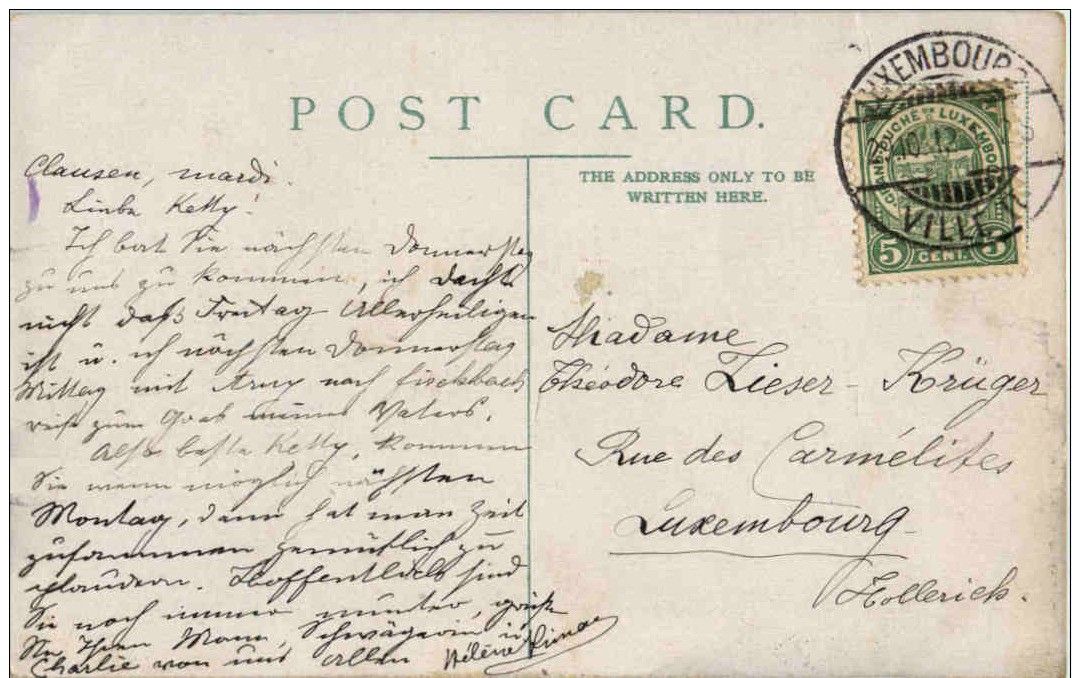 POST CARD.
THE ADDRESS ONLY TO BE
WRITTEN HERE.
LUXEMBOURG
VILLE
GRAND-DUCHÉ DE LUXEMBOURG
5 CENT. 5
Clausen, mardi.
Liebe Ketty!
Ich bat Sie nächsten Donnerstag
zu uns zu kommen, ich dachte
nicht daß Freitag Allerheiligen
ist u. ich nächsten Donnerstag
Mittag mit Amy nach Fischbach
reise zum Grab meines Vaters.
Also beste Ketty, kommen
Sie wenn möglich nächsten
Montag, dann hat man Zeit
zusammen gemütlich zu
plaudern. Hoffentlich sind
Sie noch immer munter, grüße
Sie Ihren Mann, Schwägerin u.
Charlie von uns Allen Hélène
Madame
Théodore Lieser-Krüger
Rue des Carmélites
Luxembourg-
Hollerich.